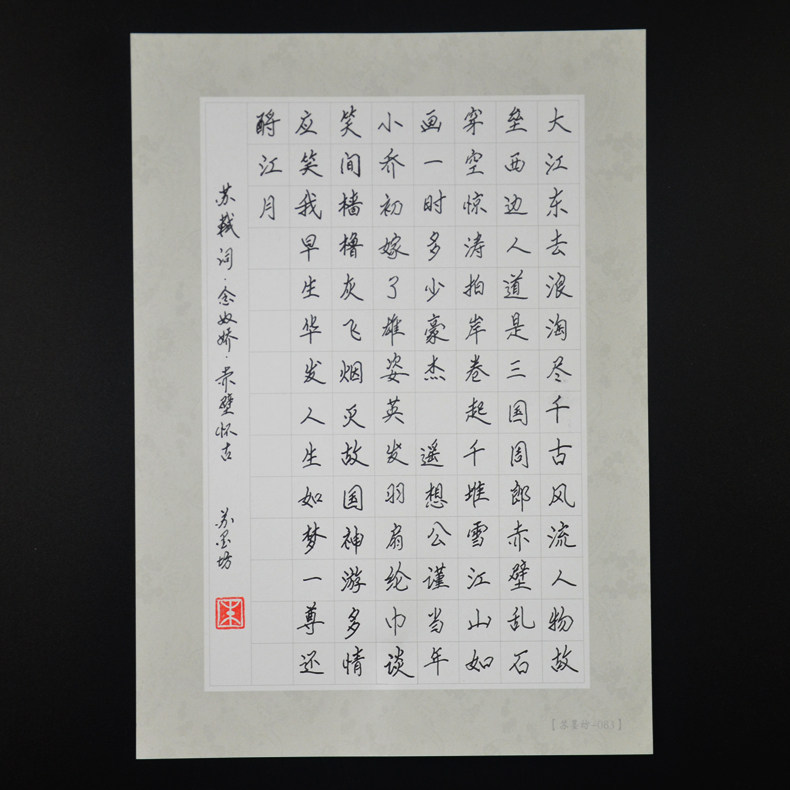 大江东去浪淘尽千古风流人物故
垒西边人道是三国周郎赤壁乱石
穿空惊涛拍岸卷起千堆雪江山如
画一时多少豪杰 遥想公谨当年
小乔初嫁了雄姿英发羽扇纶巾谈
笑间樯橹灰飞烟灭故国神游多情
应笑我早生华发人生如梦一尊还
酹江月
苏轼词·念奴娇·赤壁怀古 苏墨坊